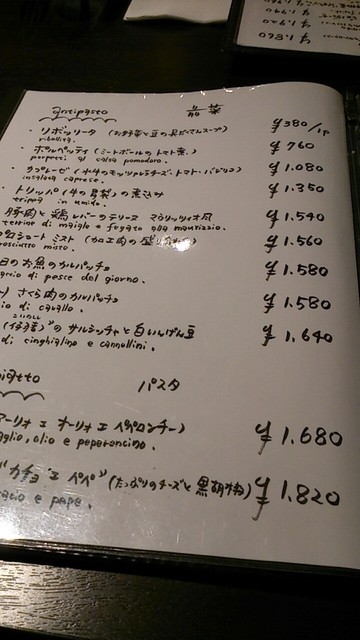 ¥1.860
antipasto 前菜
・リボッリータ (お野菜と豆の具だくさんスープ) ¥380/1P
ribollita.
・ポルペッティ (ミートボールのトマト煮.) ¥760
porpetti al calsa pomodoro.
・カプレーゼ (水牛のモッツァレラチーズ・トマト・バジリコ) ¥1.080
insalata caprese.
・トリッパ (牛の胃袋) の煮込み ¥1.350
trippa in umido.
豚肉と鶏レバーのテリーヌ マウリッツィオ風 ¥1.540
terrine di maiale e fegato alla maurizzio.
プロシュート ミスト (加工肉の盛り ¥1.560
rosciutto misto.
日のお魚のカルパッチョ ¥1.580
accio di pesce del giorno.
さくら肉のカルパッチョ ¥1.580
io di cavallo.
のサルシッチャと白いんげん豆 ¥1.640
di cinghialino e cannollini.
パスタ
アーリォ エ オーリォ エ ペペロンチー) ¥1.680
aglio, olio e peperoncino.
"カチョ エ ペペ" (たっぷりのチーズと黒胡椒) ¥1.820
cacio e pepe.